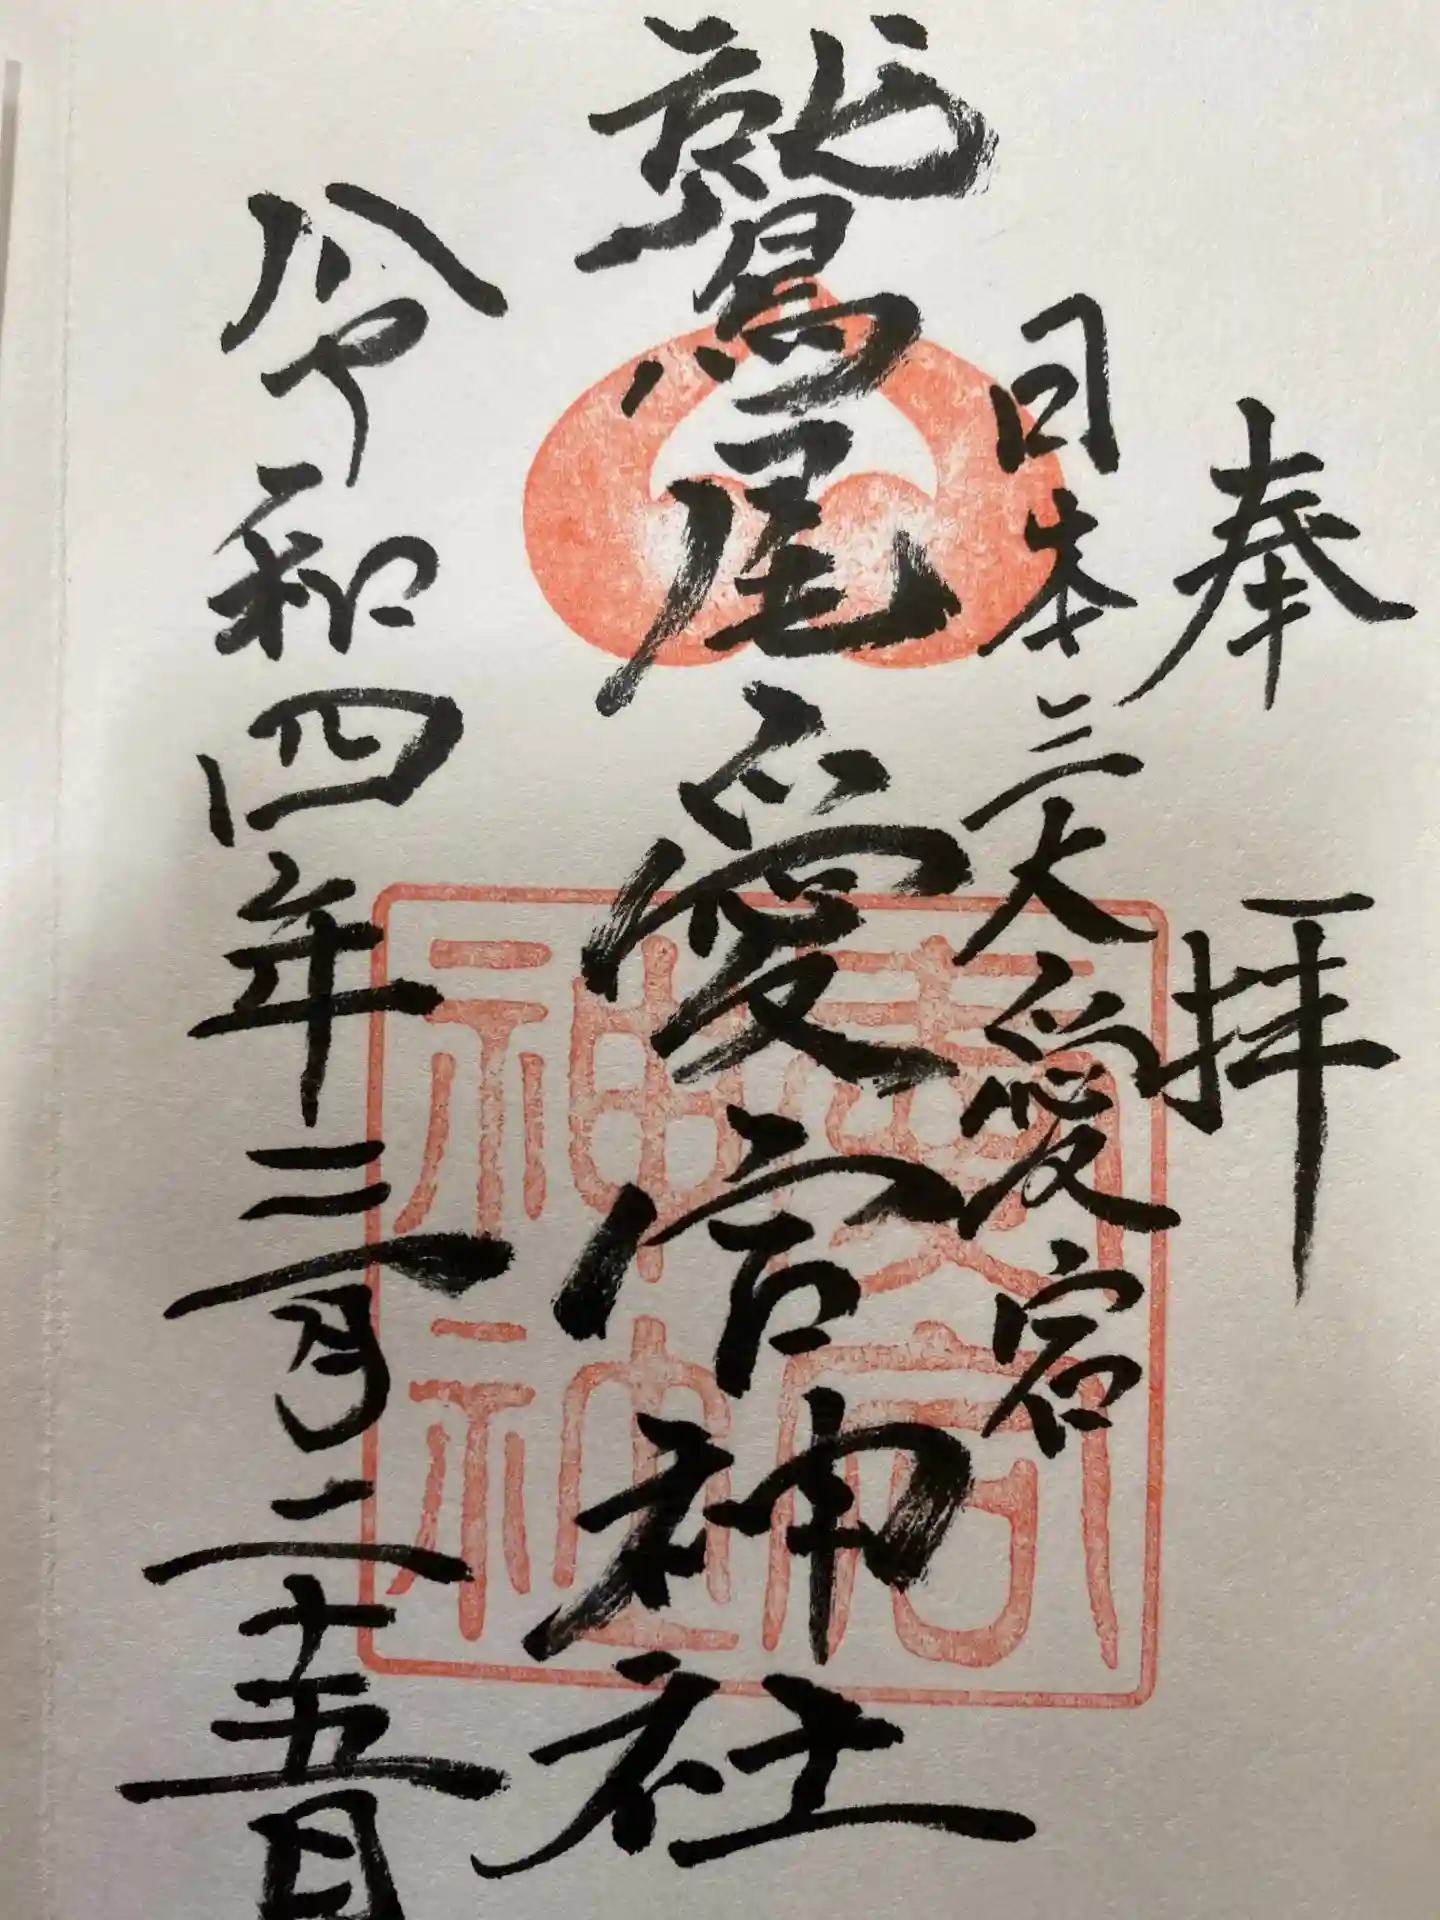 奉拝
日本三大愛宕
鷲尾愛宕神社
愛宕神社
令和四年三月二十五日